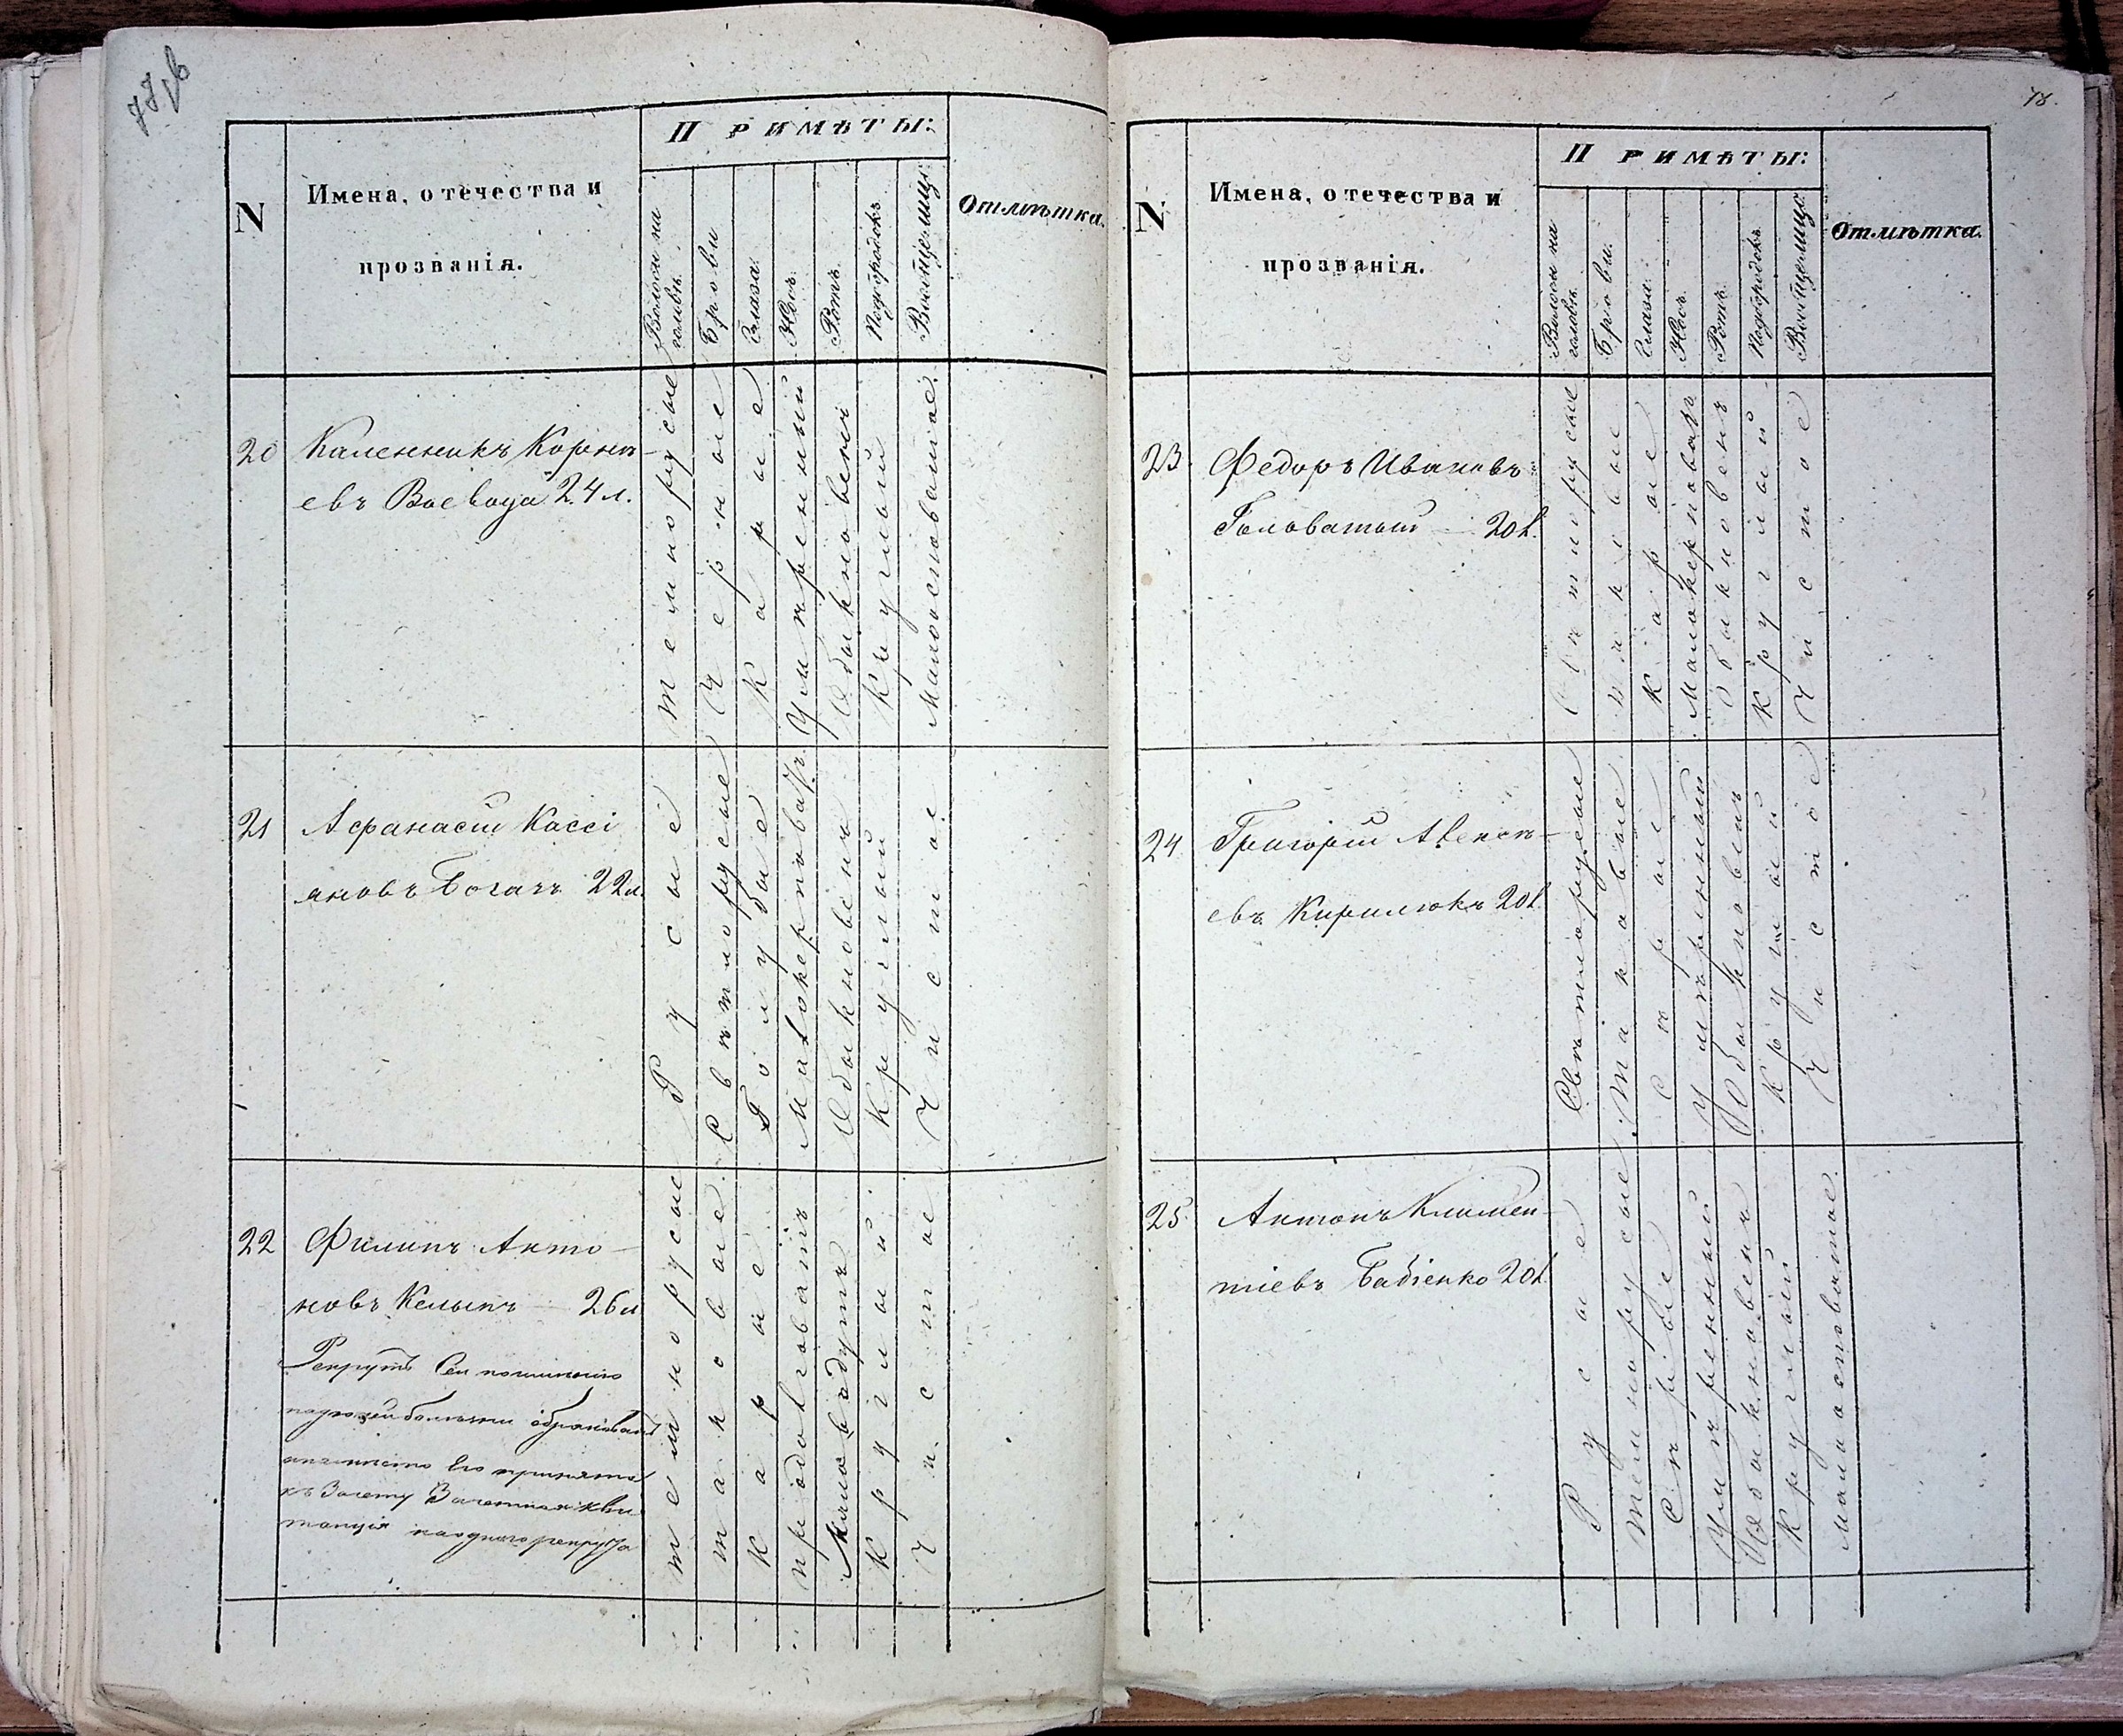 77 об
N
Имена, отечества и
прозванія.
Примѣты:
Волоси на
головѣ
Брови
Глаза
Носъ
Ротъ
Подбородокъ
Вообще лицо
Отмѣтка.
20
Каленникъ Корнѣ-
евъ Воевода 24 л.
темнорусые
Черные
Карые
Умѣренный
Обыкновенъ
Круглый
Малоостоватое.
21
Афанасій Кассі
яновъ Богачъ 22 л.
Русые
Свѣтлорусые
Голубые
Малокерповатъ
Обыкновенъ
Круглый
Чистое
22
Филипъ Анто-
новъ Келыпъ — 26 л
Рекрутъ Сей
обракованъ
его
къ Зачету Зачетная кви
танція на одного рекрута
темнорусые
таковые
Карые
продолговатъ
Круглый
Чистое
78.
N
Имена, отечества и
прозванія.
Примѣты:
Волоси на
головѣ
Брови.
Глаза.
Носъ.
Ротъ.
Подбородокъ.
Вообще лицо
Отмѣтка.
23.
Федоръ Ивановъ
Головатый — 20 л.
Свѣтлорусые
таковые
Карые
Малокерповатъ
Обыкновенъ
Круглый
Чистое
24
Григорій Алексѣ-
евъ Кирилюкъ 20 л.
Свѣтлорусые
таковые
Сѣрые
умѣренный
Обыкновенъ
Круглый
Чистое
25
Антонъ Климен-
тіевъ Бабіенко 20 л.
Русые
темнорусые
Сѣрые
Умѣренный
Обыкновенъ
Круглый
малоостоватое.